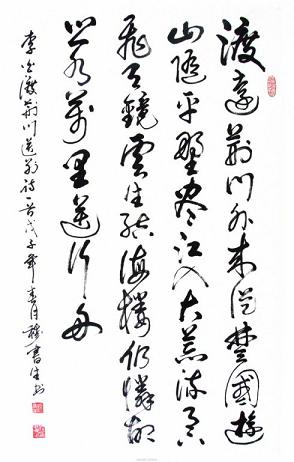 渡遠荊門外來從楚國遊
山隨平野盡江入大荒流月下
飛天鏡雲生結海樓仍憐故
鄉水萬里送行舟
李白渡荊門送別詩一首戊子年春月書